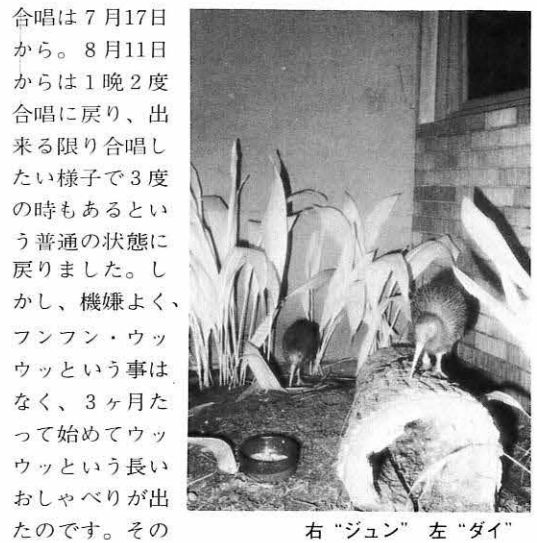 合唱は７月17日
から。８月11日
からは１晩２度
合唱に戻り、出
来る限り合唱し
たい様子で３度
の時もあるとい
う普通の状態に
戻りました。し
かし、機嫌よく、
フンフン・ウッ
ウッという事は
なく、３ヶ月た
って始めてウッ
ウッという長い
おしゃべりが出
たのです。その
右 “ジュン” 左 “ダイ”